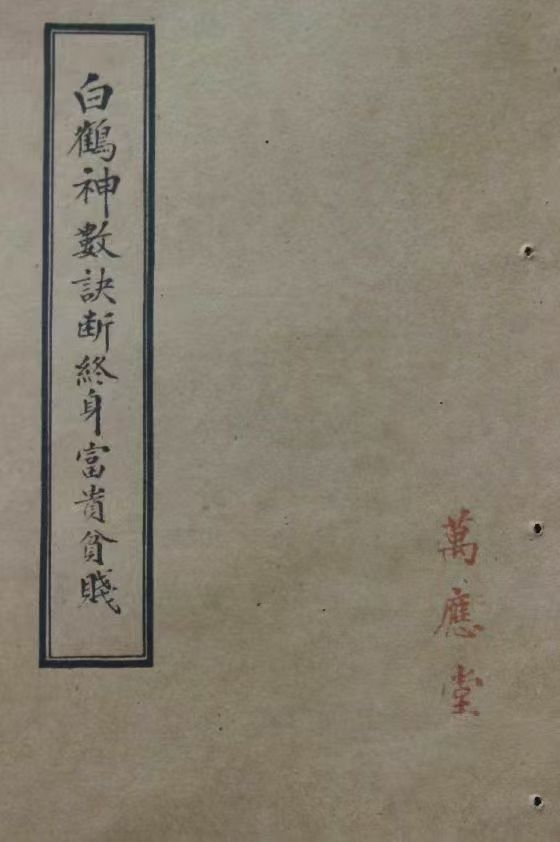 白鶴神數訣断終身富貴貧賤
萬應堂